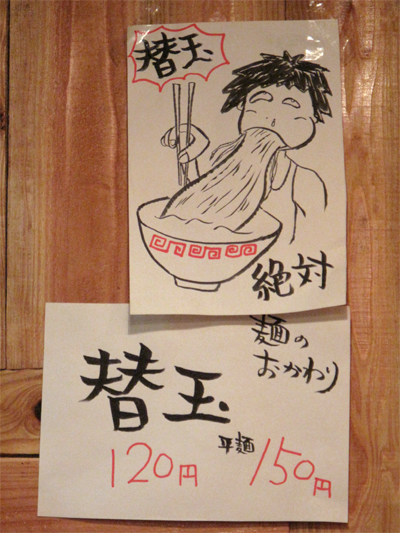 替玉
絶対
麺の
おかわり
替玉
120円
平麺 150円